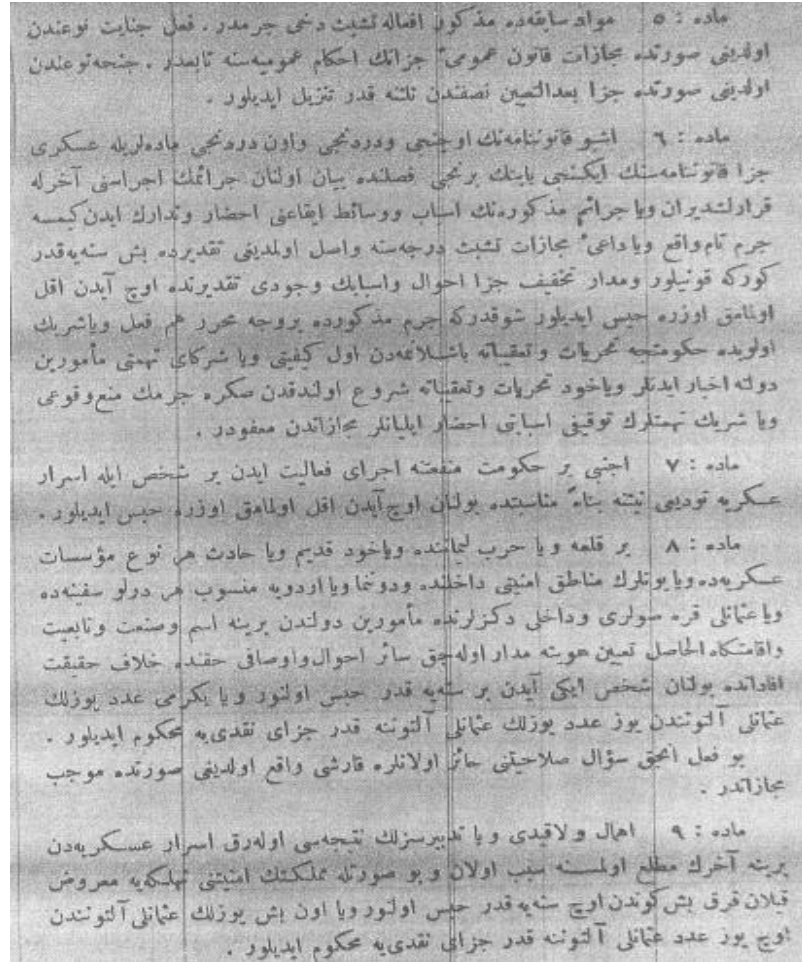 ماده : ٥ مواد سابقه‌ده مذكور افعاله تشبث دخی جرمدر . فعل جنایت نوعندن
اولدیغی صورتده مجازات قانون عمومیٔ جزانك احكام عمومیه‌سنه تابعدر . جنحه نوعندن
اولدیغی صورتده جزا بعدالتعیین نصفندن ثلثنه قدر تنزیل ایدیلور .
ماده : ٦ اشبو قانوننامه‌نك اوچنجی ودردنجی واون دردنجی ماده‌لریله عسكری
جزا قانوننامه‌سنك ایكنجی بابنك برنجی فصلنده بیان اولنان جرائمك اجراسنی آخرله
قرارلشدیران ویا جرائم مذكوره‌نك اسباب ووسائط ایقاعنی احضار وتدارك ایدن كیمسه
جرم تام واقع ویا داعیٔ مجازات تشبث درجه‌سنه واصل اولمدیغی تقدیرده بش سنه‌یه قدر
كوركه قونیلور ومدار تخفیف جزا احوال واسبابك وجودی تقدیرنده اوچ آیدن اقل
اولمامق اوزره حبس ایدیلور شوقدركه جرم مذكورده بروجه محرر هم فعل ویاشریك
اولوبده حكومتجه تحریات وتعقیباته باشلانمه‌دن اول كیفیتی ویا شركای تهمتی مأمورین
دولته اخبار ایدنلر ویاخود تحریات وتعقیباته شروع اولندقدن صكره جرمك منع وقوعی
ویا شریك تهمتلرك توقیفی اسبابی احضار ایلیانلر مجازاتدن معفودر .
ماده : ٧ اجنبی بر حكومت منفعتنه اجرای فعالیت ایدن بر شخص ایله اسرار
عسكریه تودیعی نیتنه بناءً مناسبتده بولنان اوچ آیدن اقل اولمامق اوزره حبس ایدیلور .
ماده : ٨ بر قلعه ویا حرب لیماننده ویاخود قدیم ویا حادث هر نوع مؤسسات
عسكریه‌ده ویا بونلرك مناطق امنیتی داخلنده ودونما ویا اردویه منسوب هر درلو سفینه‌ده
ویا عثمانلی قره سولری وداخلی دكزلرنده مأمورین دولتدن برینه اسم وصنعت وتابعیت
واقامتكاه الحاصل تعیین هویته مدار اوله‌جق سائر احوال واوصافی حقنده خلاف حقیقت
افاداتده بولنان شخص ایكی آیدن بر سنه‌یه قدر حبس اولنور ویا یكرمی عدد یوزلك
عثمانلی آلتونندن یوز عدد یوزلك عثمانلی آلتوننه قدر جزای نقدی‌یه محكوم ایدیلور .
بو فعل انجق سؤال صلاحیتنی حائز اولانلره قارشی واقع اولدیغی صورتده موجب
مجازاتدر .
ماده : ٩ اهمال ولاقیدی ویا تدبیرسزلك نتیجه‌سی اوله‌رق اسرار عسكریه‌دن
برینه آخرك مطلع اولمسنه سبب اولان وبو صورتله مملكتك امنیتنی تهلكه‌یه معروض
قیلان قرق بش كوندن اوچ سنه‌یه قدر حبس اولنور ویا اون بش یوزلك عثمانلی آلتونندن
اوچ یوز عدد عثمانلی آلتوننه قدر جزای نقدی‌یه محكوم ایدیلور .